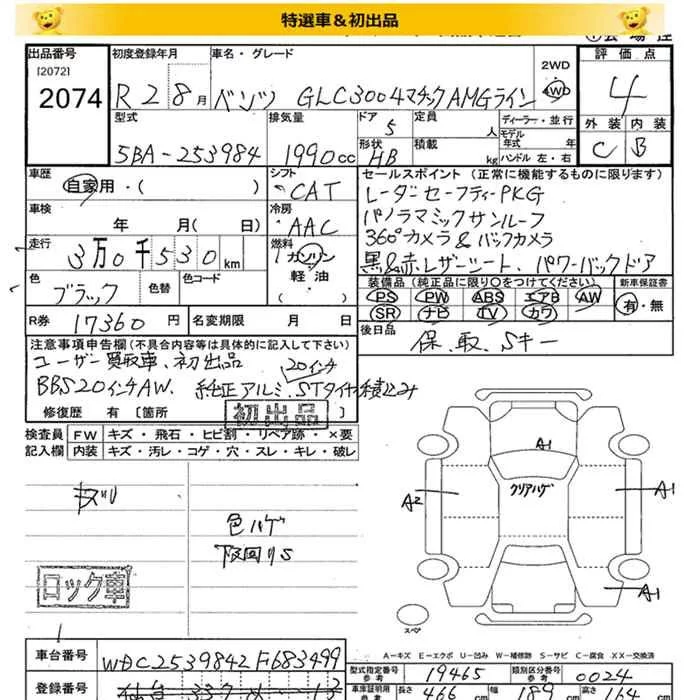 特選車＆初出品
出品番号 初度登録年月 車名・グレード 2WD 4WD 評価点
[2072]
2074 R2 8月 ベンツ GLC300 4マチック AMGライン 4
型式 排気量 ドア 5 定員 人 ディーラー・並行 外装 内装
5BA-253984 1990cc 形状 HB 積載 kg モデル年式 年式 ハンドル 左・右 C B
車歴 シフト セールスポイント (正常に機能するものに限ります)
自家用・( ) CAT レーダーセーフティーPKG
車検 冷房 パノラミックサンルーフ
年 月( 日) AAC 360°カメラ&バックカメラ
走行 3万0千530km 燃料 ガソリン 軽・油 ・( ) 黒&赤レザーシート、パワーバックドア
色 ブラック 色替 色コード 装備品 (純正品に限り○をつけてください) 新車保証書
PS PW ABS エアB AW 有・無
SR ナビ TV カワ
R券 17360円 名変期限 月 日 後日品 保、取、Sキー
注意事項申告欄(不具合内容等は具体的に記入して下さい)
ユーザー買取車、初出品 20インチ
BBS20インチAW、純正アルミ、STタイヤ積込み
修復歴 有 [箇所 初出品
検査員 FW キズ・飛石・ヒビ割・リペア跡・×要
記入欄 内装 キズ・汚レ・コゲ・穴・スレ・キレ・破レ
A1
クリアハゲ
A2 A1
色ハゲ
下回りS
ロック車
A1
スペア
A－キズ E－エクボ U－凹み W－補修跡 S－サビ C－腐食 XX－交換済
車台番号 WDC2539842F683499 型式指定番号 参考 19465 類別区分番号 参考 0024
登録番号 車車証明用 参考 長さ 466 cm 幅 189 cm 高さ 164 cm